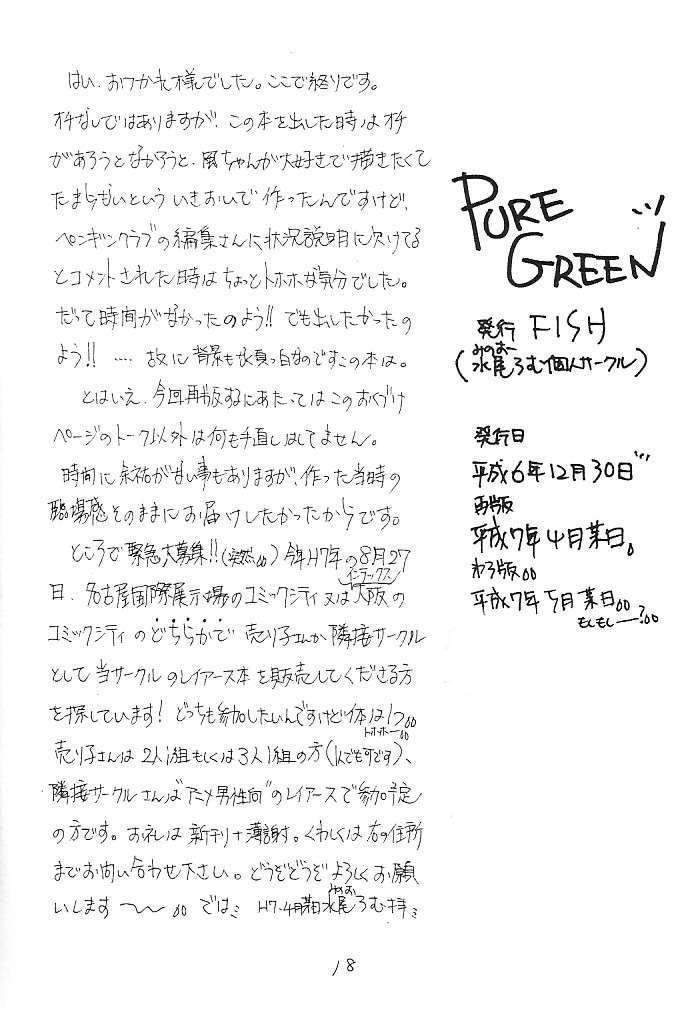 はい、おつかれ様でした。ここで終りです。
オチなしではありますが、この本を出した時はオチ
があろうとなかろうと、風ちゃんが大好きで描きたくて
たまらないという いきおいで 作ったんですけど、
ペンギンクラブの編集さんに状況説明に欠けてる
とコメントされた時はちょっとトホホな気分でした。
だって時間がなかったのよう!! でも出したかったの
よう!! ‥‥ 故に背景も真っ白なのですこの本は。
とはいえ、今回再版するにあたってはこのおくづけ
ページのトーク以外は何も手直しはしてません。
時間に余裕が甘い事もありますが、作った当時の
臨場感そのままにお届けしたかったからです。
ところで緊急大募集!!(突然。。) 今年H7年の8月27
インテックス
日、名古屋国際展示場のコミックシティ又は大阪の
コミックシティのどちらかで 売り子さんか隣接サークル
として当サークルのレイアース本を販売してくださる方
を探しています! どっちも参加したいんですけど体は1つ。。
トホホー。。
売り子さんは2人1組もしくは3人1組の方(1人でも可です)、
隣接サークルさんは"アニメ男性向"のレイアースで参加予定
の方です。お礼は新刊+薄謝。くわしくは右の住所
までお向い合わせ下さい。どうぞどうぞよろしくお願
いします 〜〜 。。 では
みのお
H7.4月某日 水尾ろむ拝
PURE
GREEN
発行 FISH
みのおー
(水尾ろむ個人サークル)
発行日
平成6年12月30日
再版
平成7年4月某日。
平成7年5月某日。。
もしもしー?。。
18